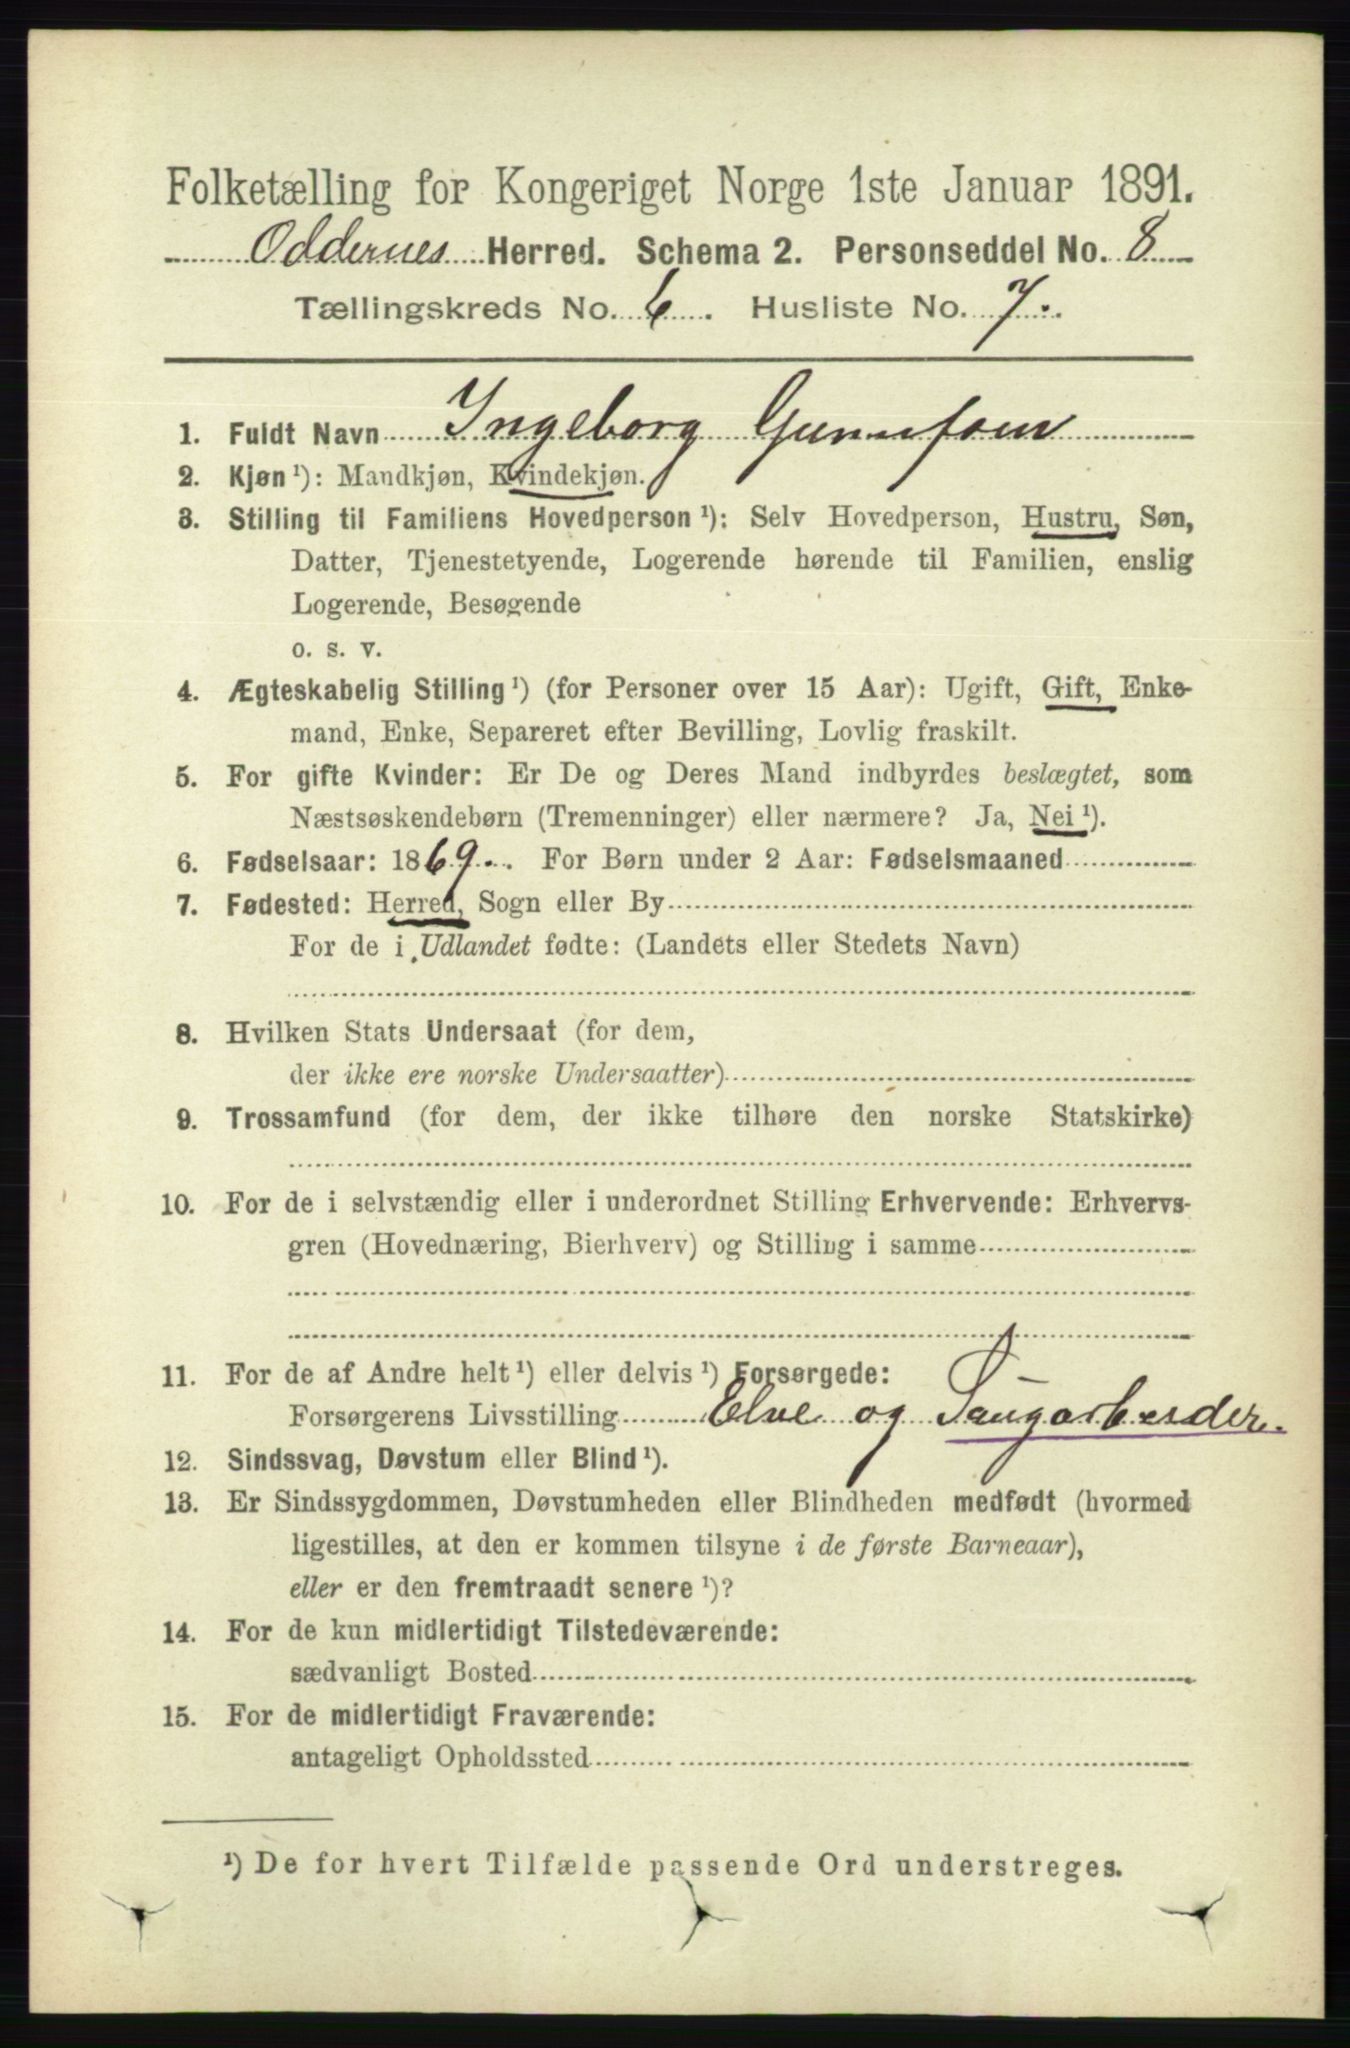 Folketælling for Kongeriget Norge 1ste Januar 1891.
Oddernes Herred. Schema 2. Personseddel No. 8
Tællingskreds No. 6. Husliste No. 7.
1. Fuldt Navn Ingeborg Gunnufsen
2. Kjøn ¹): Mandkjøn, Kvindekjøn.
3. Stilling til Familiens Hovedperson ¹): Selv Hovedperson, Hustru, Søn,
Datter, Tjenestetyende, Logerende hørende til Familien, enslig
Logerende, Besøgende
o. s. v.
4. Ægteskabelig Stilling ¹) (for Personer over 15 Aar): Ugift, Gift, Enke-
mand, Enke, Separeret efter Bevilling, Lovlig fraskilt.
5. For gifte Kvinder: Er De og Deres Mand indbyrdes beslægtet, som
Næstsøskendebørn (Tremenninger) eller nærmere? Ja, Nei ¹).
6. Fødselsaar: 1869. For Børn under 2 Aar: Fødselsmaaned
7. Fødested: Herred, Sogn eller By
For de i Udlandet fødte: (Landets eller Stedets Navn)
8. Hvilken Stats Undersaat (for dem,
der ikke ere norske Undersaatter)
9. Trossamfund (for dem, der ikke tilhøre den norske Statskirke)
10. For de i selvstændig eller i underordnet Stilling Erhvervende: Erhvervs-
gren (Hovednæring, Bierhverv) og Stilling i samme
11. For de af Andre helt ¹) eller delvis ¹) Forsørgede:
Forsørgerens Livsstilling Elve og Saugarbeider.
12. Sindssvag, Døvstum eller Blind ¹).
13. Er Sindssygdommen, Døvstumheden eller Blindheden medfødt (hvormed
ligestilles, at den er kommen tilsyne i de første Barneaar),
eller er den fremtraadt senere ¹)?
14. For de kun midlertidigt Tilstedeværende:
sædvanligt Bosted
15. For de midlertidigt Fraværende:
antageligt Opholdssted
¹) De for hvert Tilfælde passende Ord understreges.